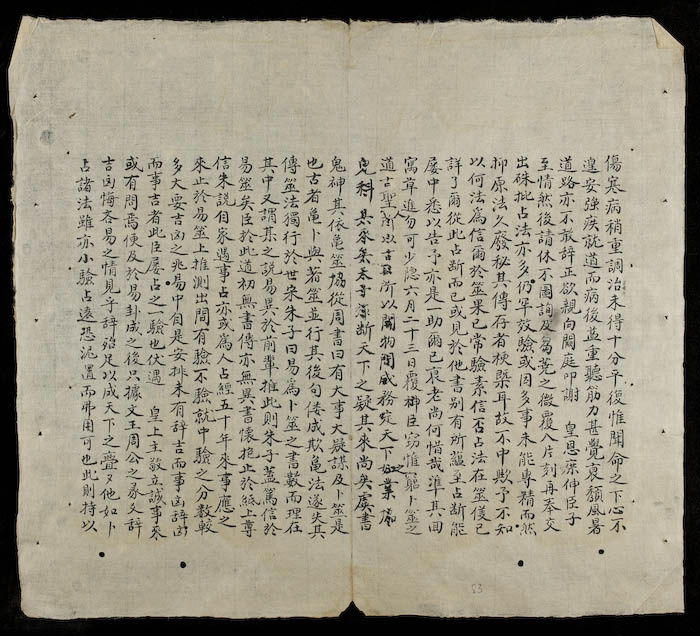 傷寒病稍重調治未得十分平復惟聞命之下心不
遑安強疾就道而病後益重聽筋力甚覺衰頹風暑
道路亦不敢辭正欲親向闕庭叩謝 皇恩燦仲臣子
至情然後請休不圖詢及芻蕘之微覆八片刻再奉交
出硃批占法亦多仍罕效驗或因多事未能專精而然
抑原法久廢秘其傳存者梗槩耳故不中歟予不知
以何法為信爾於筮果已常驗素信否占法在筮後已
詳了爾從此占斷而已或見於他書別有所驗至占斷能
屢中悉以告予亦是一助爾已衰老尚何惜哉準其回
寓草進勿可少隱六月二十三日覆 臣竊惟窮卜筮之
道言聖人所以開物開成務定天下之業
斷天下之疑其來尚矣虞書
鬼神其依龜筮協從周書曰有大事大疑謀及卜筮是
也古者龜卜與蓍筮並行其後句倭成欺龜法遂失其
傳筮法獨行於世宋朱子曰易為卜筮之書數而理在
其中又謂某之說易異於前輩推此則朱子蓋篤信於
易筮矣臣於此道初無書傳亦無異書懷抱止於紙上尊
信朱說自家遇事占亦或為人占經五十年來事應之
來止於易筮上推測出間有驗不驗就中驗之分數較
多大要吉凶之兆易中自是安排未有辭吉而事凶辭凶
而事吉者此臣屢占之驗也伏遇 皇上主敬立誠事來
或有問焉便及於易卦成之後只據文王周公之彖爻辭
吉凶悔吝易之情見乎辭殆足以成天下之亹又他如卜
占諸法雖亦小驗占遠恐泥置而弗用可也此則持以
83